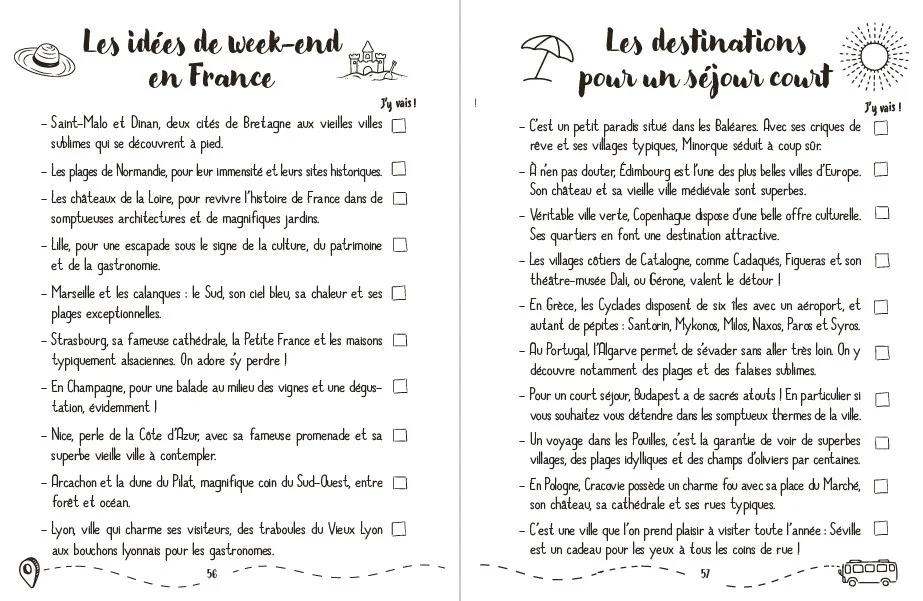 Les idées de week-end
en France
J'y vais !
- Saint-Malo et Dinan, deux cités de Bretagne aux vieilles villes
sublimes qui se découvrent à pied.
- Les plages de Normandie, pour leur immensité et leurs sites historiques.
- Les châteaux de la Loire, pour revivre l'histoire de France dans de
somptueuses architectures et de magnifiques jardins.
- Lille, pour une escapade sous le signe de la culture, du patrimoine
et de la gastronomie.
- Marseille et les calanques : le Sud, son ciel bleu, sa chaleur et ses
plages exceptionnelles.
- Strasbourg, sa fameuse cathédrale, la Petite France et les maisons
typiquement alsaciennes. On adore s'y perdre !
- En Champagne, pour une balade au milieu des vignes et une dégus-
tation, évidemment !
- Nice, perle de la Côte d'Azur, avec sa fameuse promenade et sa
superbe vieille ville à contempler.
- Arcachon et la dune du Pilat, magnifique coin du Sud-Ouest, entre
forêt et océan.
- Lyon, ville qui charme ses visiteurs, des traboules du Vieux Lyon
aux bouchons lyonnais pour les gastronomes.
56
Les destinations
pour un séjour court
!
J'y vais !
- C'est un petit paradis situé dans les Baléares. Avec ses criques de
rêve et ses villages typiques, Minorque séduit à coup sûr.
- À n'en pas douter, Édimbourg est l'une des plus belles villes d'Europe.
Son château et sa vieille ville médiévale sont superbes.
- Véritable ville verte, Copenhague dispose d'une belle offre culturelle.
Ses quartiers en font une destination attractive.
- Les villages côtiers de Catalogne, comme Cadaqués, Figueras et son
théâtre-musée Dali, ou Gérone, valent le détour !
- En Grèce, les Cyclades disposent de six îles avec un aéroport, et
autant de pépites : Santorin, Mykonos, Milos, Naxos, Paros et Syros.
- Au Portugal, l'Algarve permet de s'évader sans aller très loin. On y
découvre notamment des plages et des falaises sublimes.
- Pour un court séjour, Budapest a de sacrés atouts ! En particulier si
vous souhaitez vous détendre dans les somptueux thermes de la ville.
- Un voyage dans les Pouilles, c'est la garantie de voir de superbes
villages, des plages idylliques et des champs d'oliviers par centaines.
- En Pologne, Cracovie possède un charme fou avec sa place du Marché,
son château, sa cathédrale et ses rues typiques.
- C'est une ville que l'on prend plaisir à visiter toute l'année : Séville
est un cadeau pour les yeux à tous les coins de rue !
57